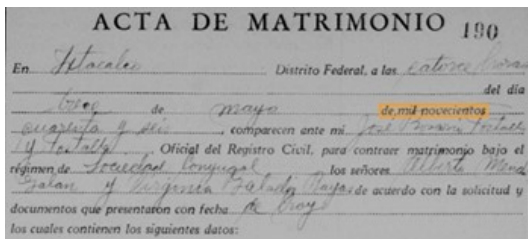 ACTA DE MATRIMONIO 190
En Iztacalco Distrito Federal, a las catorce horas
del día
trece de mayo de mil novecientos
cuarenta y seis, comparecen ante mi José
y Oficial del Registro Civil, para contraer matrimonio bajo el
régimen de Sociedad Conyugal los señores Alberto
Galán y Virginia de acuerdo con la solicitud y
documentos que presentaron con fecha de
los cuales contienen los siguientes datos: